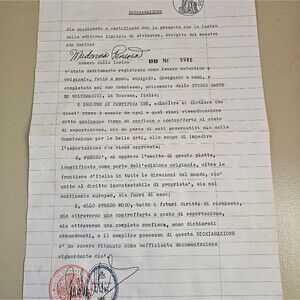 DICHIARAZIONE
Sia dichiarato e certificato con la presente che la lastra
della edizione limitata di alabastro, scolpita dal maestro
Ado Santini
Madonna Pensosa
numero dalla lastra DD Nº 5986
e'stata debitamente registrata come lavoro autentico e
originale, fatto a mano, scolpito, disegnato a mano, e
completato nel suo complesso, unicamente dallo STUDIO DANTE
DI VOLTERRAICI, in Toscana, Italia;
E INOLTRE SI CERTIFICA CHE, ed si dichiara che
quest'opera è esente da ogni e qual siasi rivendicazione
sotto qualunque forma di confisca o controfferta al costo
di esportazione, sia da parte di enti governativi sia dalla
Commissione per le Belle Arti, allo scopo di impedire
l'esportazione che viene approvata;
E PERCIO', ed approva l'uscita di questa piastra,
identificata come parte dell'edizione originale, oltre le
frontiere d'Italia in tutte le direzioni del mondo, cio'
unito al diritto incontestabile di proprieta', sia nel
continente europeo, sia fuori di esso;
E, ALLO STESSO MODO, tutti i futuri diritti di richiesta,
sia attraverso una controfferta a costo di esportazione,
sia attraverso una completa confisca, sono dichiarati
abbandonati, e il semplice possesso di questa DICHIARAZIONE
e' da essere ritenuto come sufficiente documentazione
riguardante cio'.